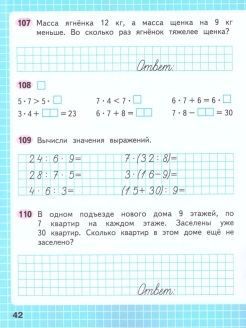 107 Масса ягнёнка 12 кг, а масса щенка на 9 кг
меньше. Во сколько раз ягнёнок тяжелее щенка?
Ответ:
108
5 · 7 > 5 · □ 7 · 4 < 7 · □ 6 · 7 + 6 = 6 · □
3 · 4 + □□ = 23 6 · □ = 6 + □ 7 · 8 − □□ = 30
109 Вычисли значения выражений.
24 : 6 · 9 = 7 · (32 : 8) =
28 : 7 · 5 = 3 · (16 − 9) =
4 · 6 : 3 = (15 + 30) : 9 =
110 В одном подъезде нового дома 9 этажей, по
7 квартир на каждом этаже. Заселены уже
30 квартир. Сколько квартир в этом доме ещё не
заселено?
Ответ:
42